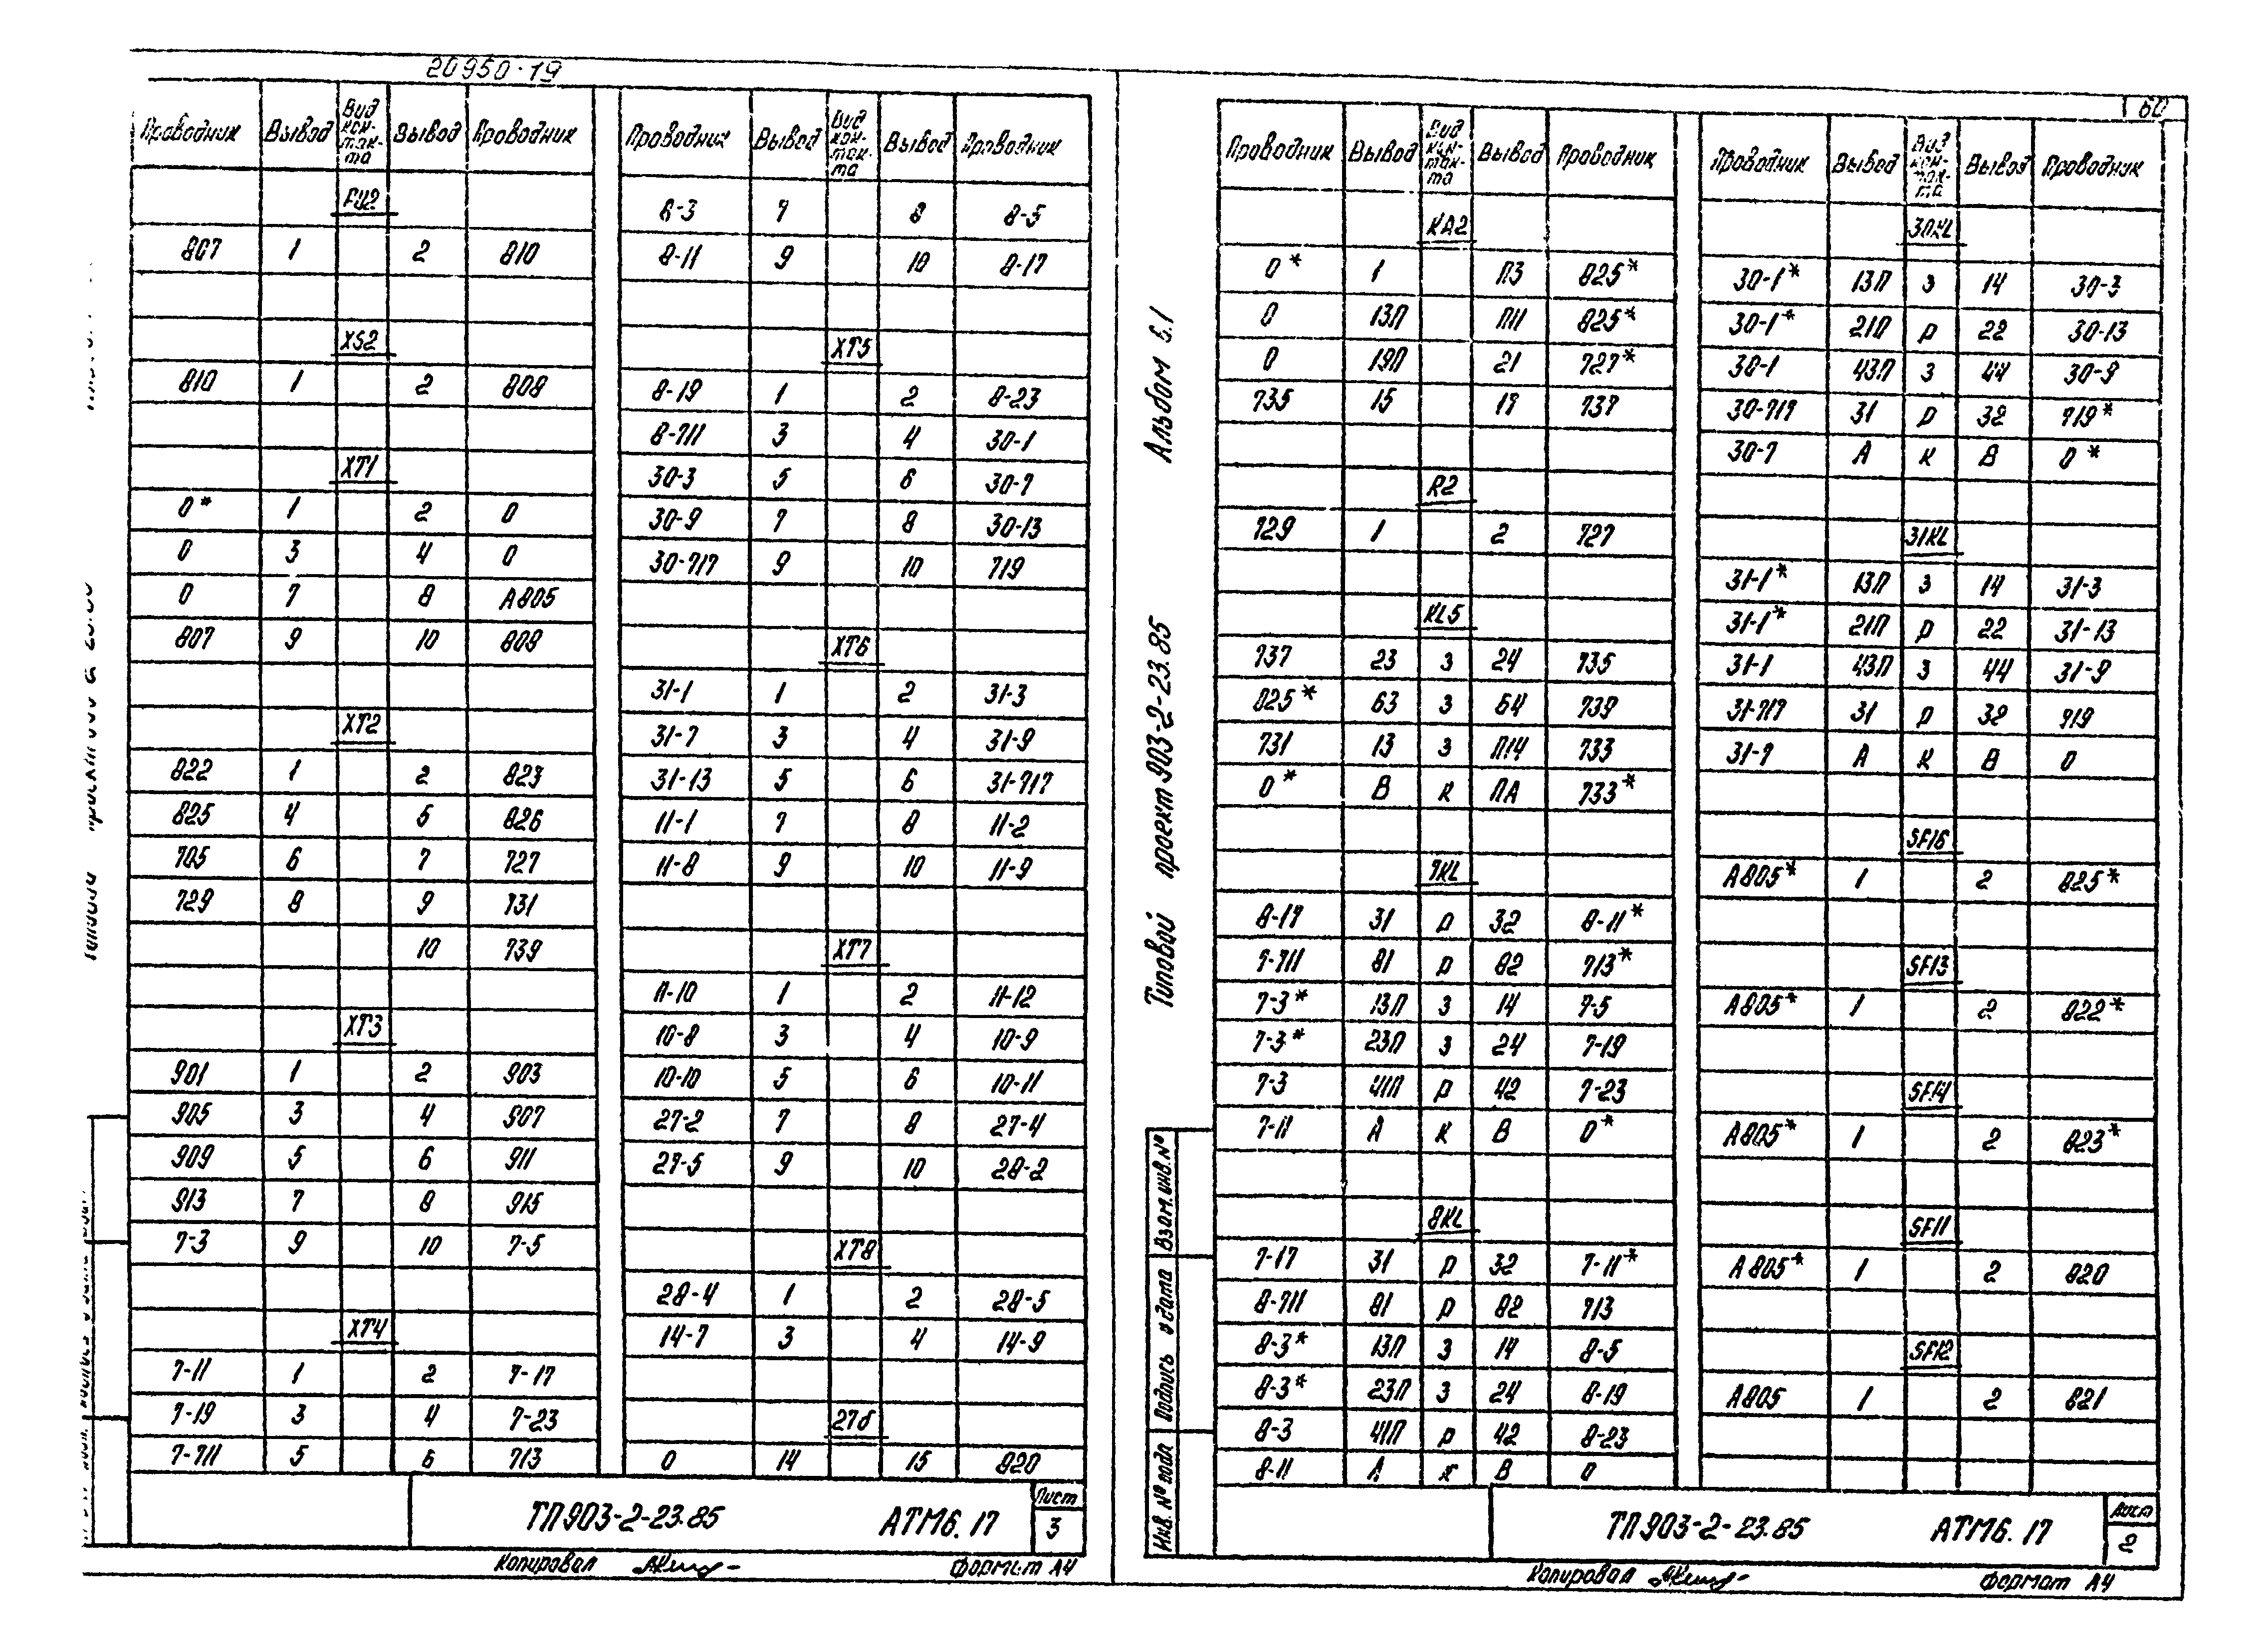 20950-19
Проводник Вывод Вид кон-так-та Вывод Проводник
FU2
807 1 2 810
XS2
810 1 2 808
XT1
0* 1 2 0
0 3 4 0
0 7 8 А805
807 9 10 808
XT2
822 1 2 823
825 4 5 826
705 6 7 727
729 8 9 731
10 739
XT3
901 1 2 903
905 3 4 907
909 5 6 911
913 7 8 915
7-3 9 10 7-5
XT4
7-11 1 2 7-17
7-19 3 4 7-23
7-711 5 6 713
Проводник Вывод Вид кон-так-та Вывод Проводник
8-3 7 8 8-5
8-11 9 10 8-17
XT5
8-19 1 2 8-23
8-711 3 4 30-1
30-3 5 6 30-7
30-9 7 8 30-13
30-717 9 10 719
XT6
31-1 1 2 31-3
31-7 3 4 31-9
31-13 5 6 31-717
11-1 7 8 11-2
11-8 9 10 11-9
XT7
11-10 1 2 11-12
10-8 3 4 10-9
10-10 5 6 10-11
27-2 7 8 27-4
27-5 9 10 28-2
XT8
28-4 1 2 28-5
14-7 3 4 14-9
27б
0 14 15 820
ТП903-2-23.85 АТМ6.17 Лист 3
Копировал Формат А4
60
Альбом 6.1
Типовой проект 903-2-23.85
Взам.инв.№
Подпись и дата
Инв. № подл
Проводник Вывод Вид кон-так-та Вывод Проводник
KA2
0* 1 П3 825*
0 13П П11 825*
0 19П 21 727*
735 15 17 737
R2
729 1 2 727
KL5
737 23 з 24 735
825* 63 з 64 739
731 13 з П14 733
0* В к ПА 733*
7KL
8-17 31 р 32 8-11*
7-711 81 р 82 713*
7-3* 13П з 14 7-5
7-3* 23П з 24 7-19
7-3 41П р 42 7-23
7-11 А к В 0*
8KL
7-17 31 р 32 7-11*
8-711 81 р 82 713
8-3* 13П з 14 8-5
8-3* 23П з 24 8-19
8-3 41П р 42 8-23
8-11 А к В 0
Проводник Вывод Вид кон-так-та Вывод Проводник
30KL
30-1* 13П з 14 30-3
30-1* 21П р 22 30-13
30-1 43П з 44 30-9
30-717 31 р 32 719*
30-7 А к В 0*
31KL
31-1* 13П з 14 31-3
31-1* 21П р 22 31-13
31-1 43П з 44 31-9
31-717 31 р 32 719
31-7 А к В 0
SF16
А805* 1 2 825*
SF13
А805* 1 2 822*
SF14
А805* 1 2 823*
SF11
А805* 1 2 820
SF12
А805 1 2 821
ТП903-2-23.85 АТМ6.17 Лист 2
Копировал Формат А4